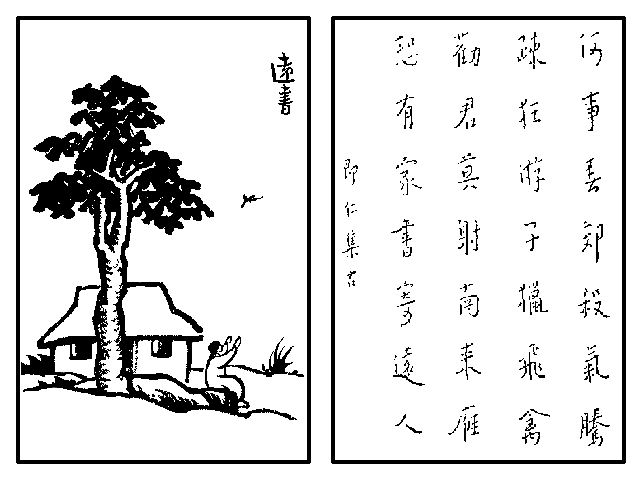 遠書
何事春郊殺氣騰
疎狂游子獵飛禽
勸君莫射南來雁
恐有家書寄遠人
即仁集古